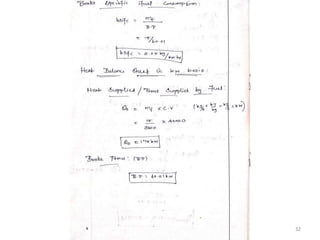 Brake Specific fuel Consumption:
bsfc = mf
B.P
= 15/60.01
bsfc = 0.25 kg/kw hr
Heat Balance Sheet in kw basis:
Heat Supplied / Heat Supplied by fuel:
Qs = mf × C.V
= 15
3600 ×
Qs =
Brake Power: (B.P)
B.P = 60.01 kw
32